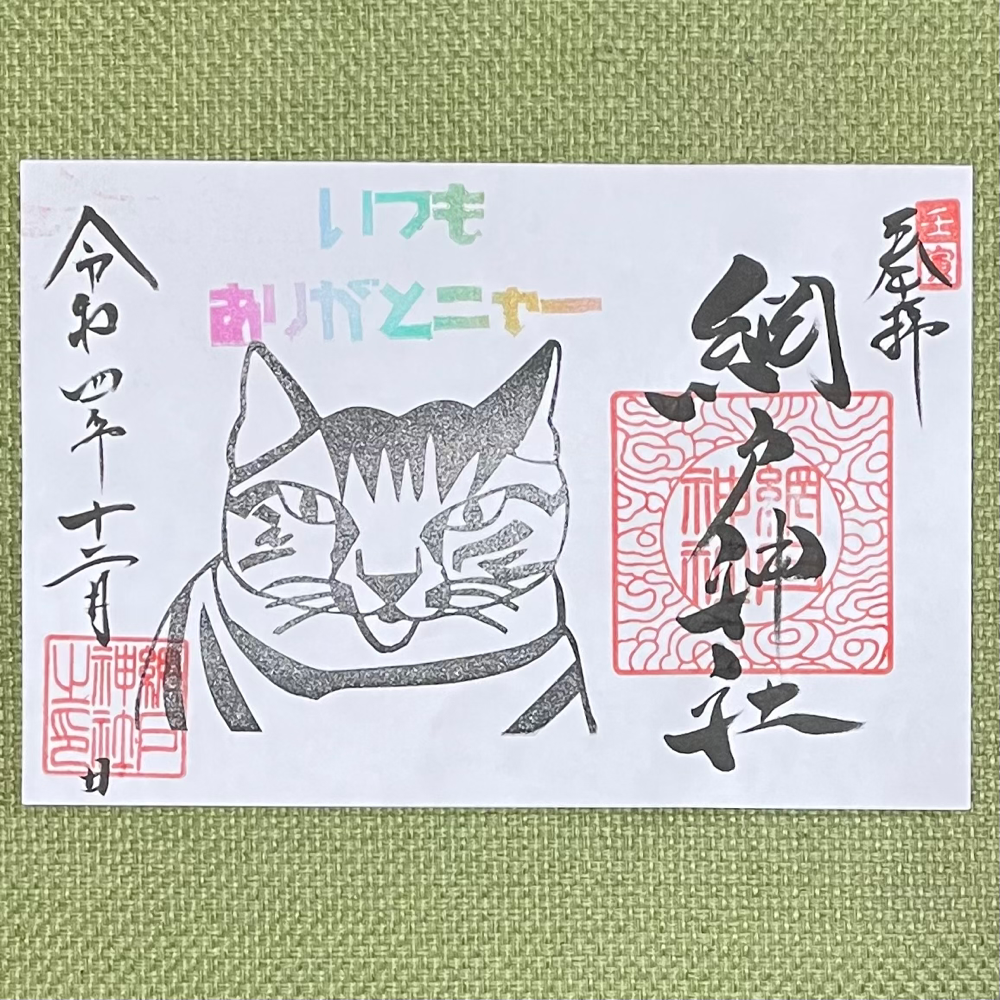 壬寅
奉拝
網戸神社
網戸神社
いつも
ありがとニャー
令和四年十二月 日
網戸神社之印